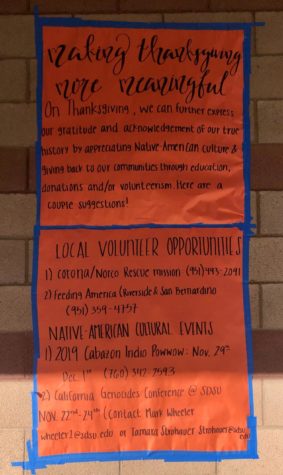 making thanksgiving
more meaningful
On Thanksgiving, we can further express
our gratitude and acknowledgement of our true
history by appreciating Native American culture &
giving back to our communities through education,
donations and/or volunteerism. Here are a
couple suggestions!
LOCAL VOLUNTEER OPPORTUNITIES
1) Corona/Norco Rescue mission (951)493-2091
2) Feeding America (Riverside & San Bernardino
(951) 359-4757
NATIVE-AMERICAN CULTURAL EVENTS
1) 2019 Cabazon Indio Powwow: Nov. 29th
Dec. 1st (760) 342 2593
2) California Genocides Conference @ SDSU
NOV. 22nd-24th (Contact Mark Wheeler
wheeler1@sdsu.edu or Tamara Strohauer Strohauer@sdsu
edu